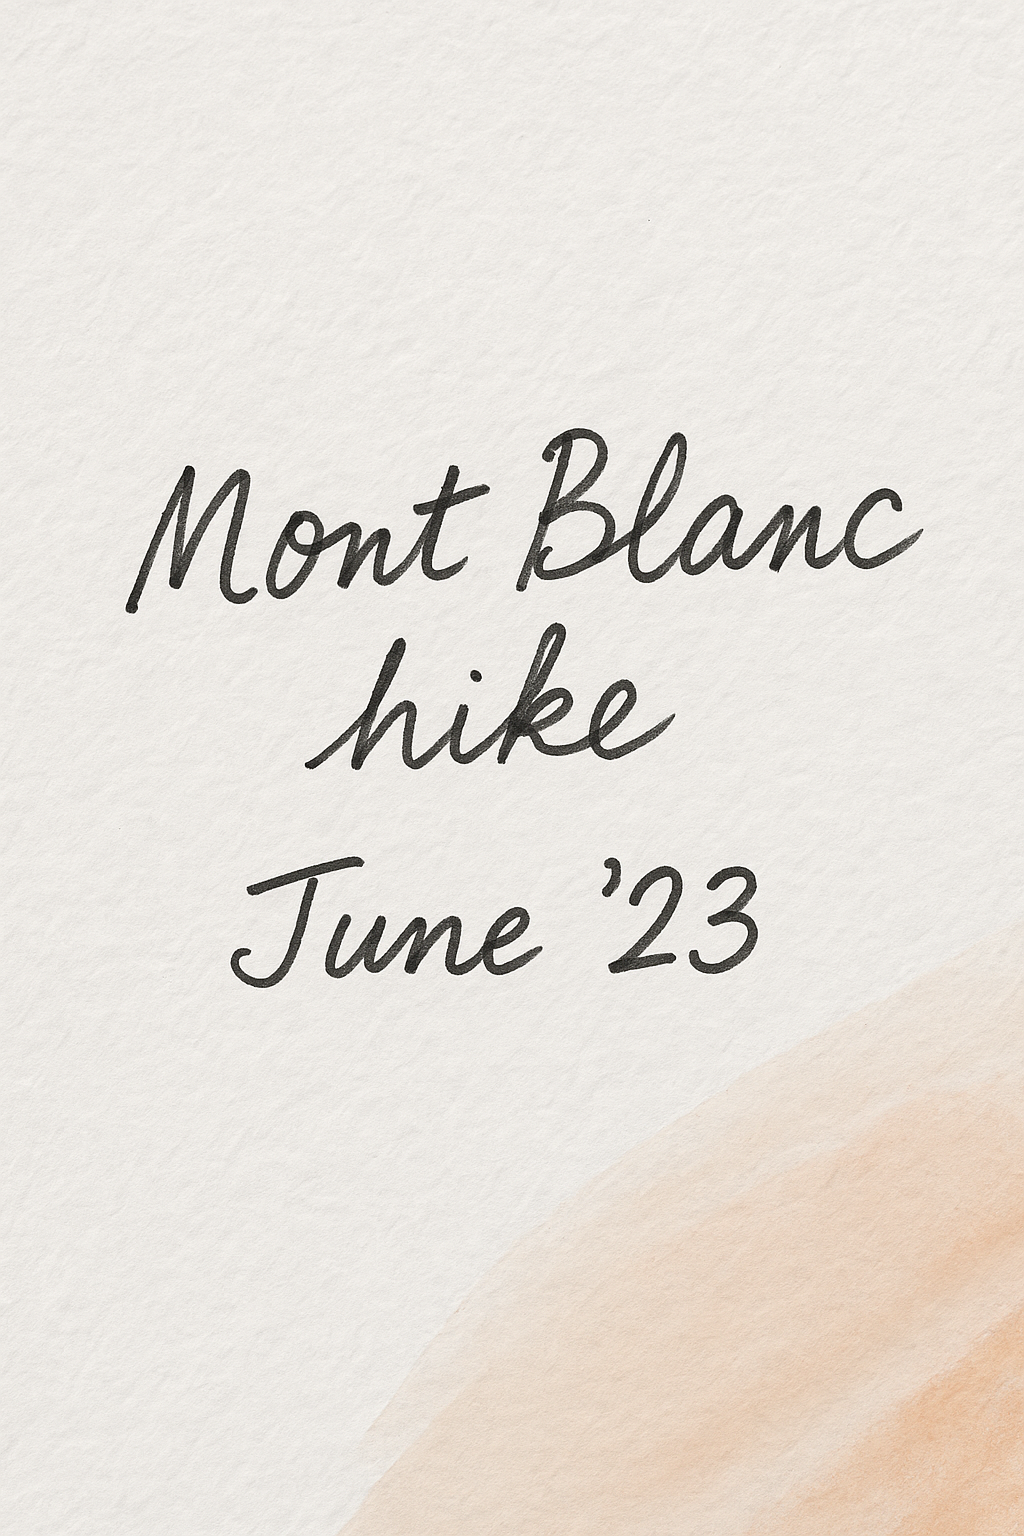 Mont Blanc
hike
June ’23